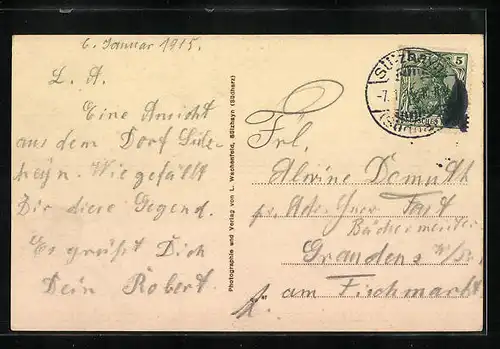 6. Januar 1915.
L. A.
Eine Ansicht
aus dem Dorf Sülz-
heyn. Wie gefällt
Dir diese Gegend.
Es grüßt Dich
Dein Robert.
Photographie und Verlag von L. Wachenfeld, Sülzhayn (Südharz)
Frl.
Alwine Domuth
pr. Adr. Fast
Bäckermeister
Graudenz
am Fischmarkt
Sülzhayn
-7.1
5